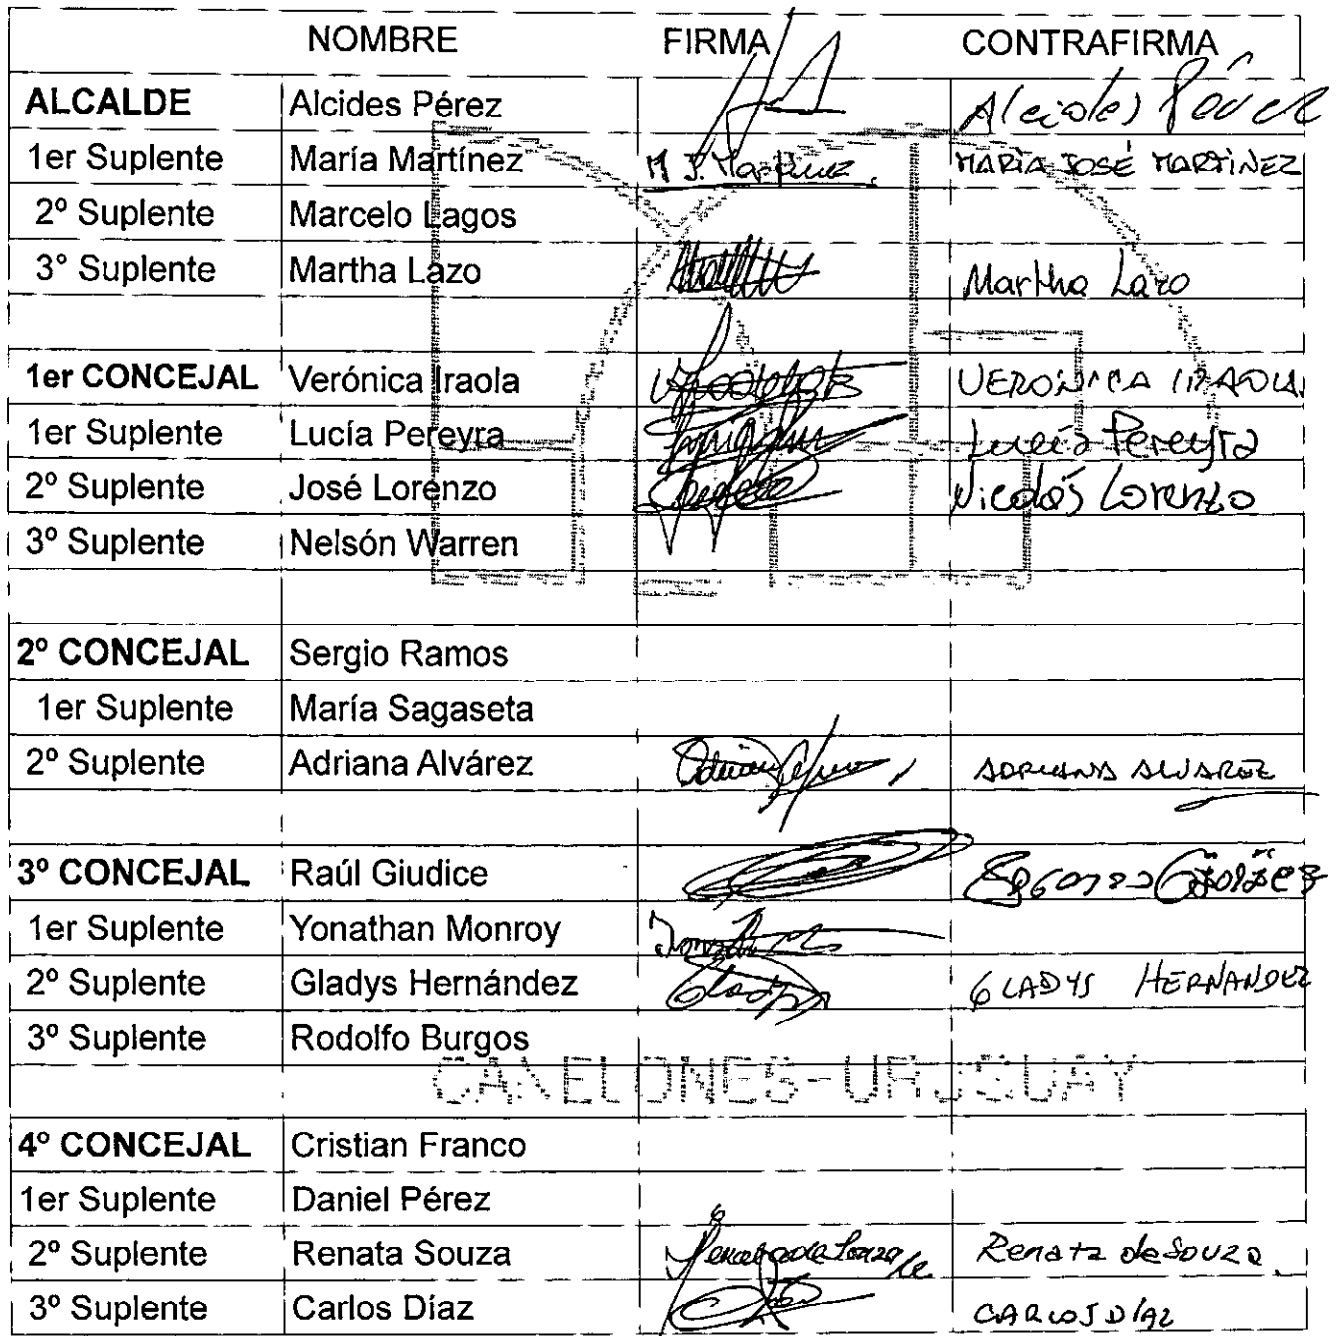 NOMBRE FIRMA CONTRAFIRMA
ALCALDE Alcides Pérez Alcides Pérez
1er Suplente María Martínez M J. Martínez. MARÍA JOSÉ MARTÍNEZ
2º Suplente Marcelo Lagos
3° Suplente Martha Lazo Martha Lazo
1er CONCEJAL Verónica Iraola VERÓNICA IRAOLA
1er Suplente Lucía Pereyra Lucía Pereyra
2º Suplente José Lorenzo Nicolás Lorenzo
3º Suplente Nelsón Warren
2º CONCEJAL Sergio Ramos
1er Suplente María Sagaseta
2º Suplente Adriana Alvárez ADRIANA ALVAREZ
3º CONCEJAL Raúl Giudice
1er Suplente Yonathan Monroy
2º Suplente Gladys Hernández Gladys GLADYS HERNANDEZ
3º Suplente Rodolfo Burgos
CANELONES-URUGUAY
4º CONCEJAL Cristian Franco
1er Suplente Daniel Pérez
2º Suplente Renata Souza Renata de Souza Renata de Souza.
3º Suplente Carlos Díaz CARLOS DÍAZ